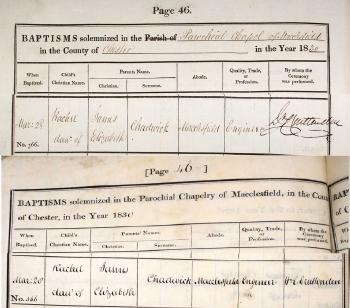 Page 46.
BAPTISMS solemnized in the Parish of Parochial Chapel of Macclesfield
in the County of Chester in the Year 1830
When Baptized.
Child's Christian Name.
Parents Name.
Christian.
Surname.
Abode.
Quality, Trade, or Profession.
By whom the Ceremony was performed.
Mar. 28
No. 366.
Rachel
daur. of
James
Elizabeth
Chadwick
Macclesfield
Engineer
[Page 46]
BAPTISMS solemnized in the Parochial Chapelry of Macclesfield, in the Coun
of Chester, in the Year 1830
When Baptized.
Child's Christian Name.
Parents' Names.
Christian.
Surname.
Abode.
Quality, Trade, or Profession.
By whom the Ceremony was Performed.
Mar. 28
No. 366
Rachel
daur. of
James
Elizabeth
Chadwick
Macclesfield
Engineer